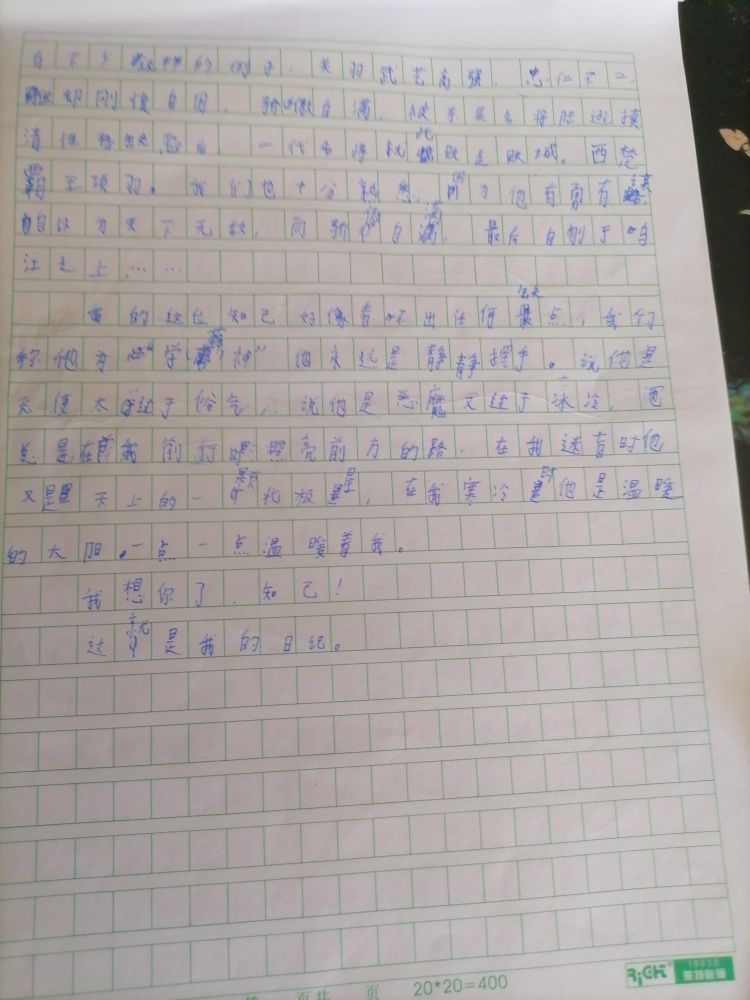 有不少这样的例子，关羽武艺高强，忠仁不二
却刚愎自用，骄傲自满，被东吴名将陆逊摸
清性格，一代名将就此败走麦城。西楚
霸王项羽。我们也十分熟悉，因为他有勇有谋
自以为天下无敌，而骄傲自满，最后自刎于乌
江之上……
我的这位知己好像看不出任何缺点，我们
称他为"学神"他永远是静静握手。说他是
天使太过于俗气，说他是恶魔又过于冰冷，而
总是在我前打照亮前方的路，在我迷茫时他
又是天上的一颗北极星，在我寒冷时他是温暖
的太阳，一点一点温暖着我。
我想你了，知己！
这就是我的日记。
第 页共 页 20*20=400
RiCH